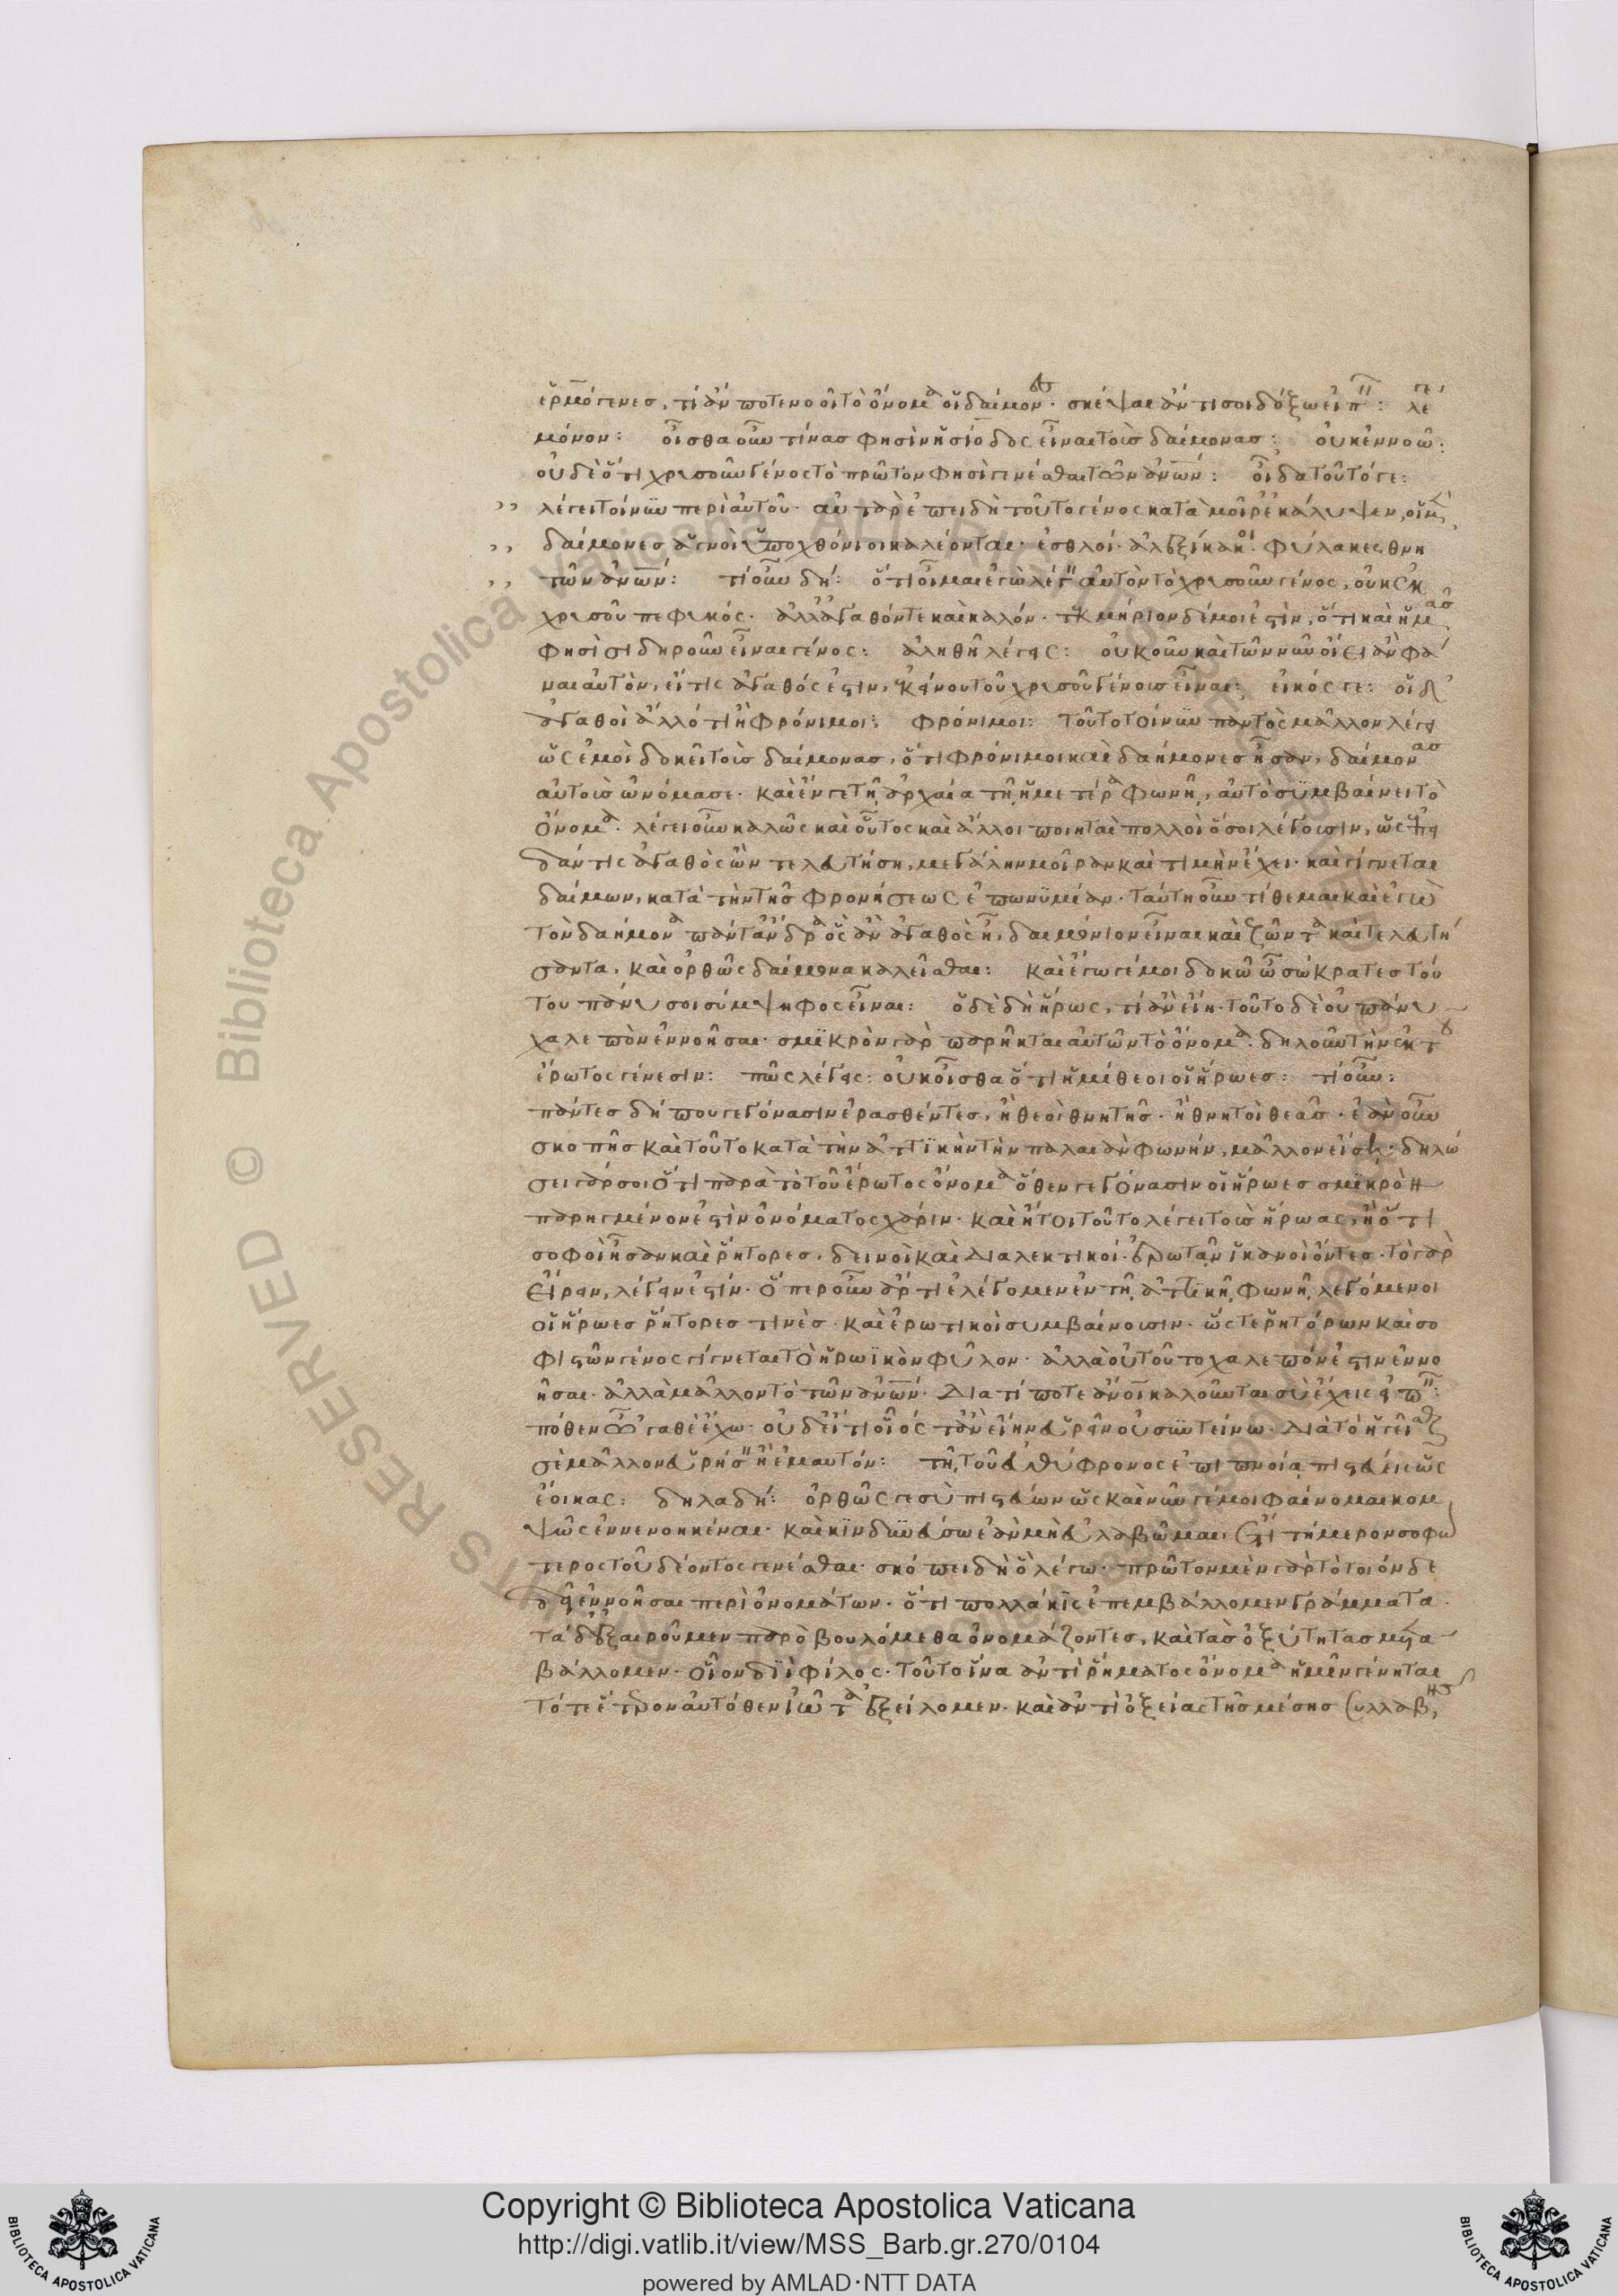 ἑρμόγενες, τί ἄν ποτε νοοῖ τὸ ὄνομα οἱ δαίμονες· σκέψαι ἄν τί σοι δόξω εἰπεῖν: λέγε
μόνον: οἶσθα οὖν τίνας φησὶν ἡσίοδος εἶναι τοὺς δαίμονας: οὐκ ἐννοῶ:
οὐδὲ ὅτι χρυσοῦν γένος τὸ πρῶτον φησὶ γενέσθαι τῶν ἀνων: οἶδα τοῦτό γε:
λέγει τοίνυν περὶ αὐτοῦ· αὐτὰρ ἐπειδὴ τοῦτο γένος κατὰ μοῖρ' ἐκάλυψεν, οἱ μὲν
δαίμονες ἁγνοὶ ὑποχθόνιοι καλέονται· ἐσθλοί· ἀλεξίκακοι· φύλακες θνη
τῶν ἀνων: τί οὖν δή: ὅτι οἶμαι ἐγὼ λέγειν αὐτὸν τὸ χρυσοῦν γένος, οὐκ ἐκ
χρυσοῦ πεφυκός· ἀλλ' ἀγαθόν τε καὶ καλόν· τεκμήριον δέ μοί ἐστιν, ὅτι καὶ ἡμᾶς
φησὶ σιδηροῦν εἶναι γένος: ἀληθῆ λέγεις: οὐκοῦν καὶ τῶν νῦν οἴει ἂν φά
ναι αὐτὸν, εἴ τις ἀγαθός ἐστιν, ἐκείνου τοῦ χρυσοῦ γένους εἶναι: εἰκός γε: οἱ δ'
ἀγαθοὶ ἄλλό τι ἢ φρόνιμοι: φρόνιμοι: τοῦτο τοίνυν παντὸς μᾶλλον λέγει
ὡς ἐμοὶ δοκεῖ τοὺς δαίμονας, ὅτι φρόνιμοι καὶ δαήμονες ἦσαν, δαίμονας
αὐτοὺς ὠνόμασε· καὶ ἔν γε τῇ ἀρχαία τῇ ἡμετέρα φωνῇ, αὐτὸ συμβαίνει τὸ
ὄνομα· λέγει οὖν καλῶς καὶ οὗτος καὶ ἄλλοι ποιηταὶ πολλοὶ ὅσοι λέγουσιν, ὡς ἐπει
δάν τις ἀγαθὸς ὢν τελευτήση, μεγάλην μοῖραν καὶ τιμὴν ἔχει· καὶ γίγνεται
δαίμων, κατὰ τὴν τῆς φρονήσεως ἐπωνυμίαν· ταύτη οὖν τίθεμαι καὶ ἐγὼ
τὸν δαήμονα πάντ' ἄνδρα ὃς ἂν ἀγαθὸς ἦ, δαιμόνιον εἶναι καὶ ζῶντα καὶ τελευτή
σαντα, καὶ ὀρθῶς δαίμονα καλεῖσθαι: καὶ ἐγώ γέ μοι δοκῶ ὦ σώκρατες τού
του πάνυ σοι σύμψηφος εἶναι: ὁ δὲ δὴ ἥρως, τί ἂν εἴη· τοῦτο δὲ οὐ πάνυ
χαλεπὸν ἐννοῆσαι· σμικρὸν γὰρ παρῆκται αὐτῶν τὸ ὄνομα· δηλοῦν τὴν ἐκ τοῦ
ἔρωτος γένεσιν: πῶς λέγεις: οὐκ οἶσθα ὅτι ἡμίθεοι οἱ ἥρωες: τί οὖν:
πάντες δή που γεγόνασιν ἐρασθέντες, ἢ θεοὶ θνητῆς· ἢ θνητοὶ θεᾶς· ἐὰν οὖν
σκοπῆς καὶ τοῦτο κατὰ τὴν ἀττικὴν τὴν παλαιὰν φωνήν, μᾶλλον εἴσει· δηλώ
σει γάρ σοι ὅτι παρὰ τὸ τοῦ ἔρωτος ὄνομα ὅθεν γεγόνασιν οἱ ἥρωες σμικρὸν
παρηγμένον ἐστὶν ὀνόματος χάριν· καὶ ἤτοι τοῦτο λέγει τοὺς ἥρωας, ἢ ὅτι
σοφοὶ ἦσαν καὶ ῥήτορες, δεινοὶ καὶ διαλεκτικοί· ἐρωτᾶν ἱκανοὶ ὄντες· τὸ γὰρ
εἴρειν, λέγειν ἐστίν· ὅπερ οὖν ἄρτι ἐλέγομεν ἐν τῇ ἀττικῇ φωνῇ, λεγόμενοι
οἱ ἥρωες ῥήτορές τινὲς· καὶ ἐρωτικοὶ συμβαίνουσιν· ὥστε ῥητόρων καὶ σο
φιστῶν γένος γίγνεται τὸ ἡρωϊκὸν φῦλον· ἀλλὰ οὐ τοῦτο χαλεπόν ἐστιν ἐννο
ῆσαι· ἀλλὰ μᾶλλον τὸ τῶν ἀνων· διὰ τί ποτε ἄνοι καλοῦνται σὺ ἔχεις εἰπεῖν:
πόθεν ὦ 'γαθὲ ἔχω· οὐδ' εἴ τι οἷός τ' ἂν εἴην εὑρεῖν οὐ συντείνω· διὰ τὸ ἡγεῖσθαι
σὲ μᾶλλον εὑρήσειν ἢ ἐμαυτόν: τῇ τοῦ εὐθύφρονος ἐπιπνοία πιστεύεις ὡς
ἔοικας: δηλαδή: ὀρθῶς γε σὺ πιστεύων ὡς καὶ νῦν γέ μοι φαίνομαι κομ
ψῶς ἐννενοηκέναι· καὶ κινδυνεύσω ἐὰν μὴ εὐλαβῶμαι ἔτι τήμερον σοφώ
τερος τοῦ δέοντος γενέσθαι· σκόπει δὴ ὃ λέγω· πρῶτον μὲν γὰρ τὸ τοιόνδε
δεῖ ἐννοῆσαι περὶ ὀνομάτων· ὅτι πολλάκις ἐπεμβάλλομεν γράμματα
τὰ δ' ἐξαιροῦμεν παρ' ὃ βουλόμεθα ὀνομάζοντες, καὶ τὰς ὀξύτητας μετα
βάλλομεν· οἷον διὶ φίλος· τοῦτο ἵνα ἀντὶ ῥήματος ὄνομα ἡμῖν γένηται
τό τε ἕτερον αὐτόθεν ἰῶτα ἐξείλομεν· καὶ ἀντὶ ὀξείας τῆς μέσης συλλαβῆς
Copyright © Biblioteca Apostolica Vaticana
http://digi.vatlib.it/view/MSS_Barb.gr.270/0104
powered by AMLAD·NTT DATA